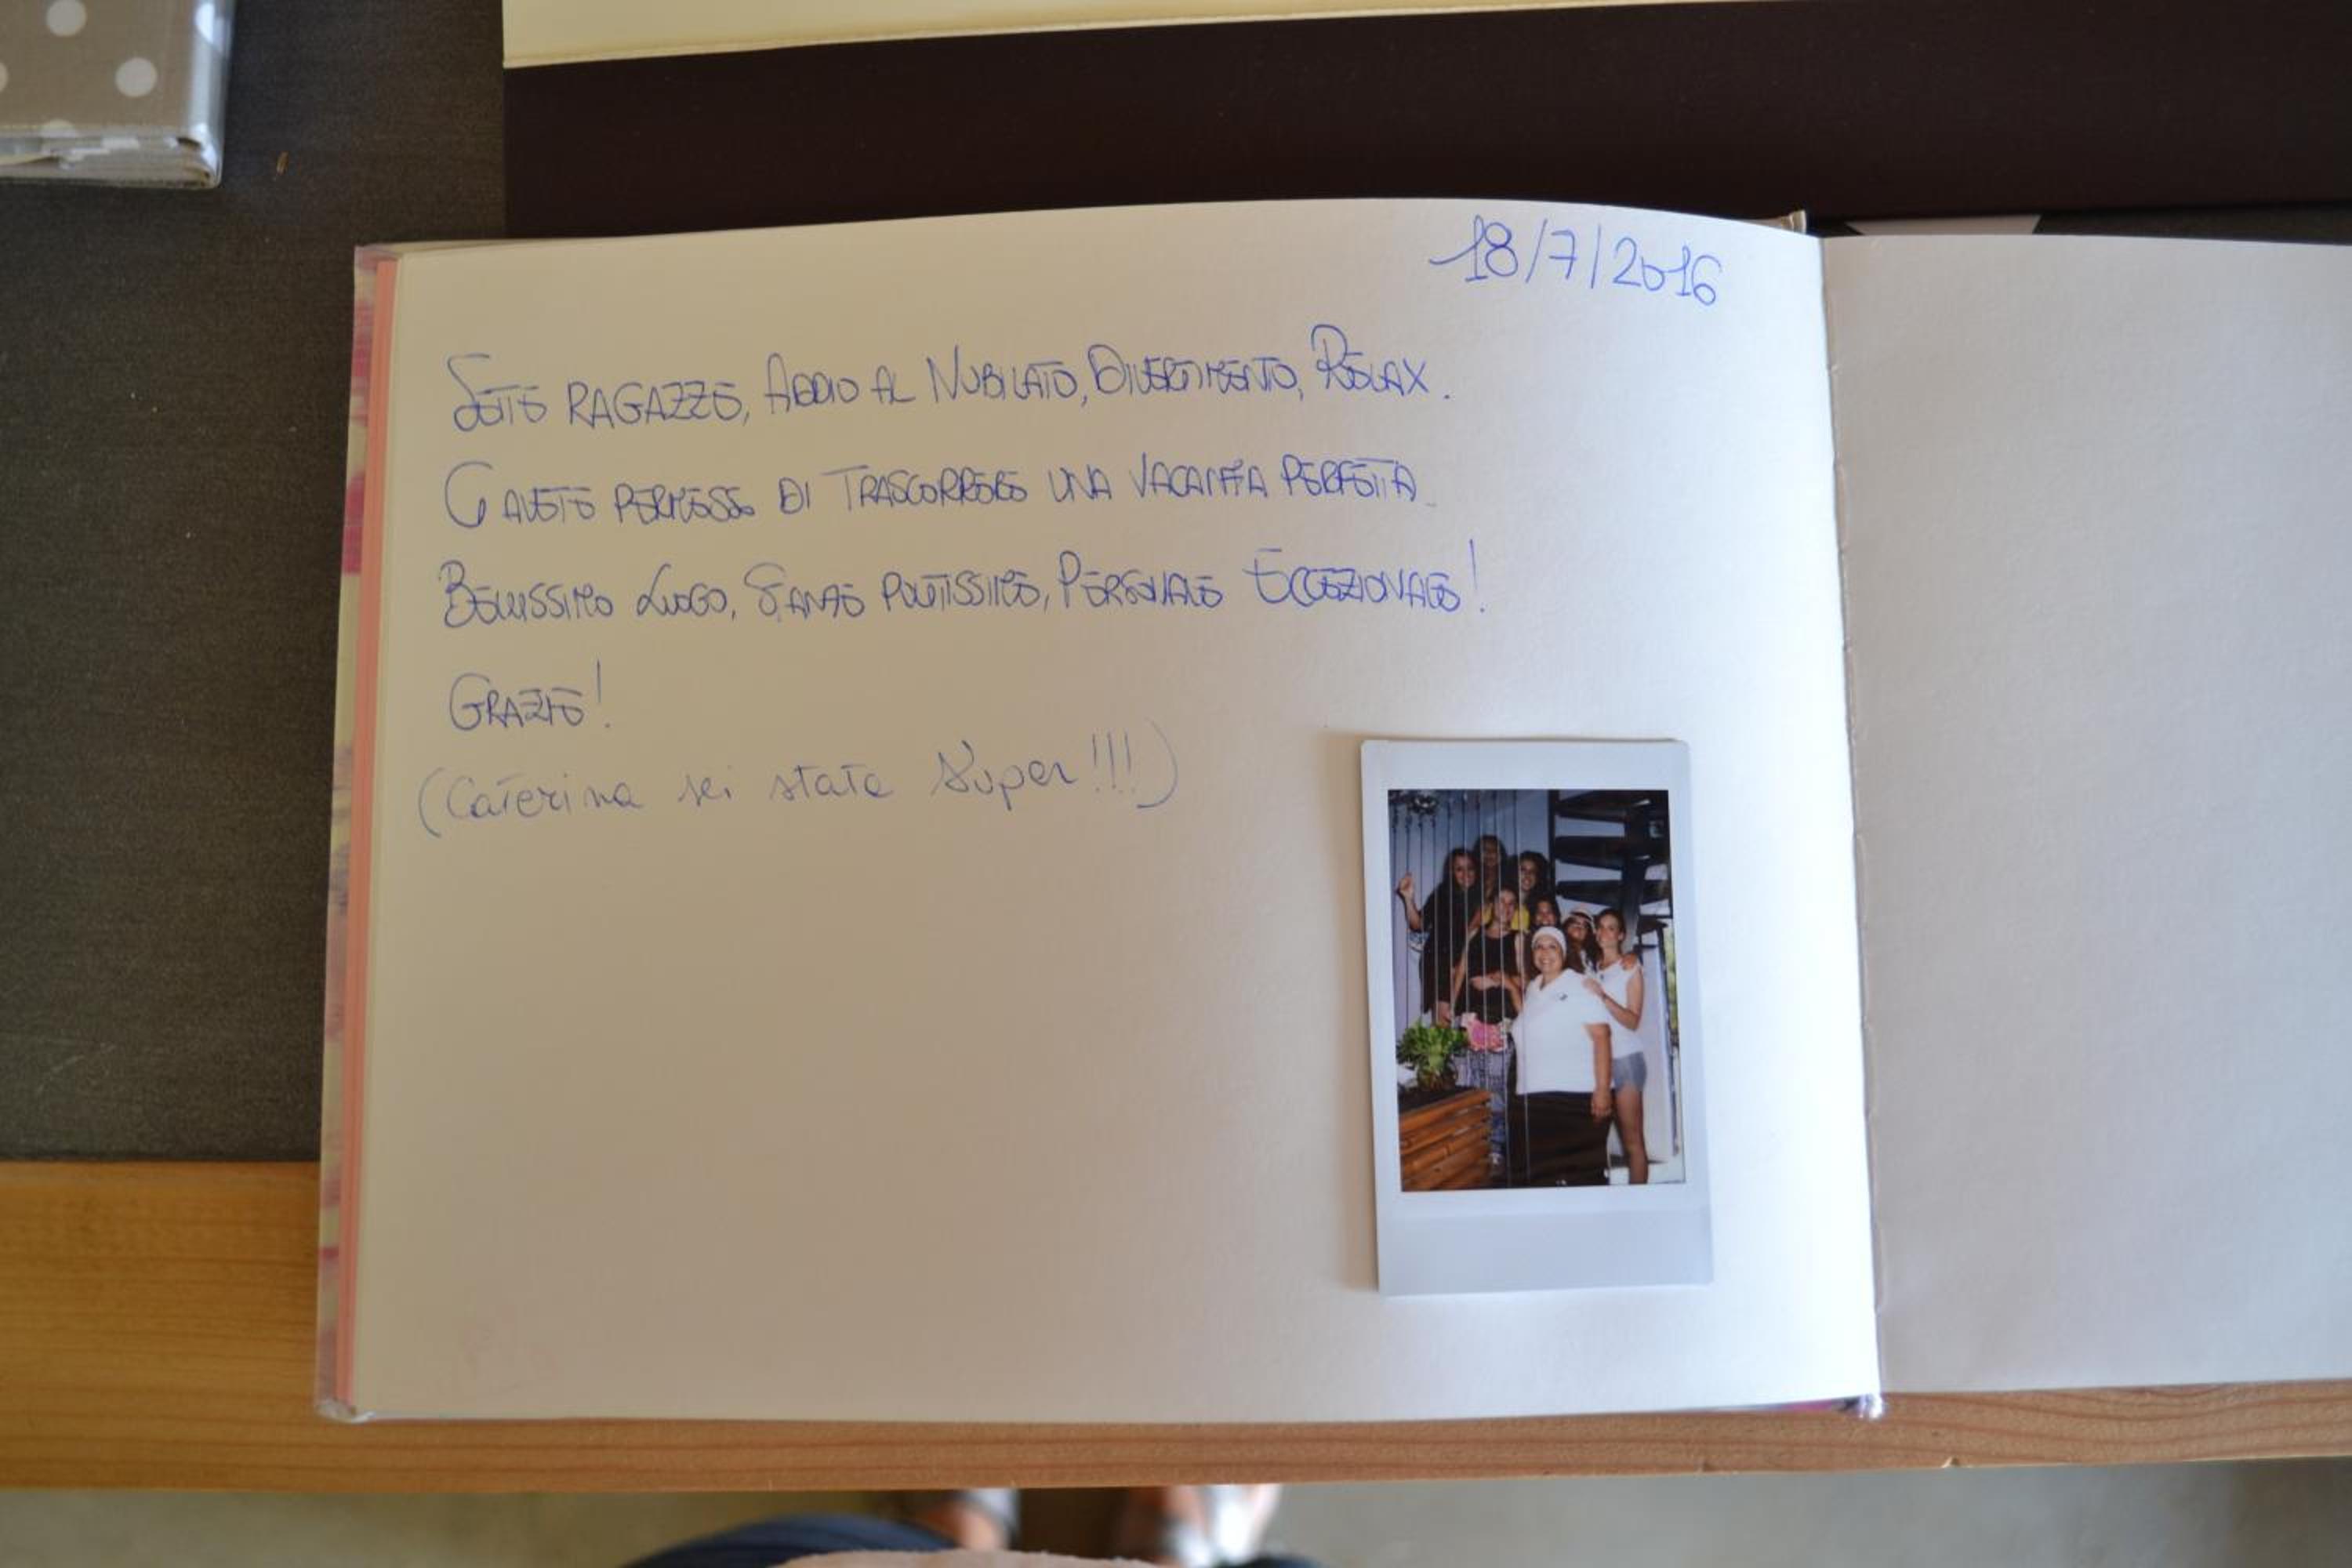 18/7/2016
SETTE RAGAZZE, ADDIO AL NUBILATO, DIVERTIMENTO, RELAX.
CI AVETE PERMESSO DI TRASCORRERE UNA VACANZA PERFETTA.
BELLISSIMO LUOGO, STANZE PULITISSIME, PERSONALE ECCEZIONALE!
GRAZIE!
(Caterina sei stata Super!!!)